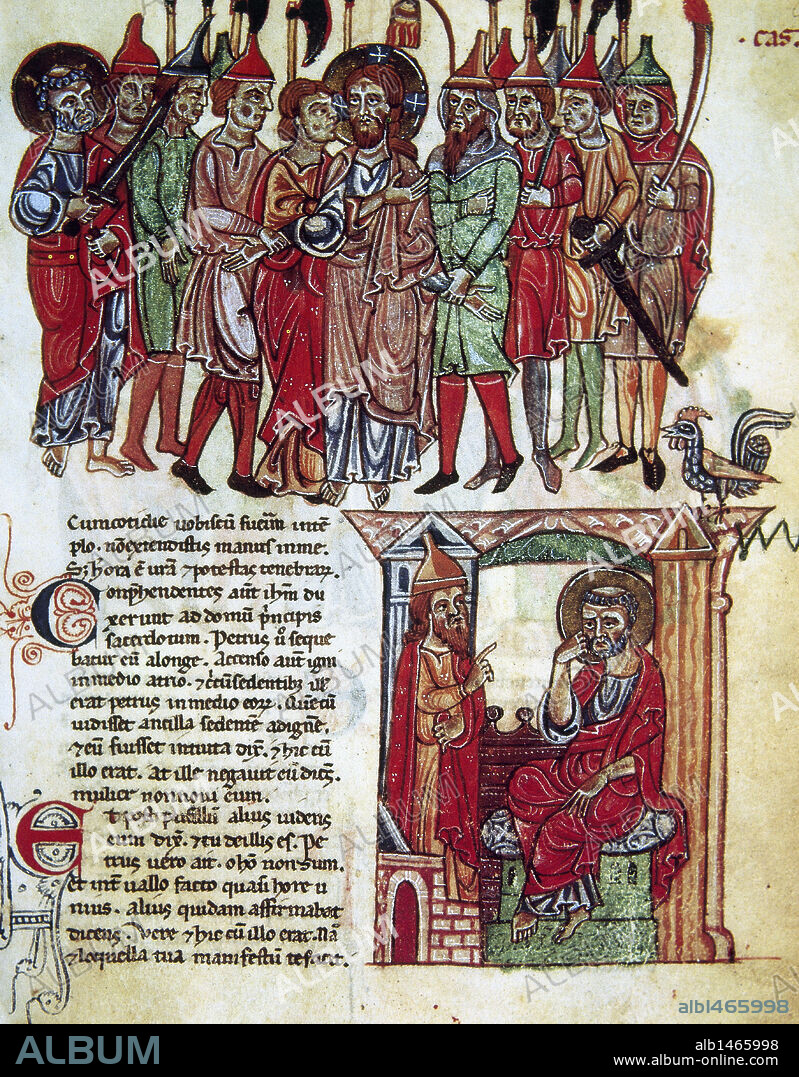 · cas.
Cum cotidie vobiscū fuerim in tē
plo. nō extendistis manus in me.
S; hora ē vr̄a & potestas tenebrar̄.
Conp̄hendentes aut̄ ihm̄ du
xerunt ad domū p̄ncipis
sacerdotum. Petrus v̊ seque
batur eū alonge. Accenso aut̄ igni
in medio atrio. & circū sedentib; illis
erat petrus in medio eor̄. Quē cū
vidisset ancilla sedentē ad ignē.
& eū fuisset intuita dix̄. & hic cū
illo erat. At ille negavit eū dicēs.
mulier non novi eum.
Et post pusillū alius videns
eum dix̄. & tu de illis es. Pe
trus vero ait. o hō non sum.
Et int̄vallo facto quasi hore u
nius. alius quidam affirmabat
dicens. vere & hic cū illo erat. Nā
& loquella tua manifestū te facit.
ALBUM
alb1465998
alb1465998
www.album-online.com